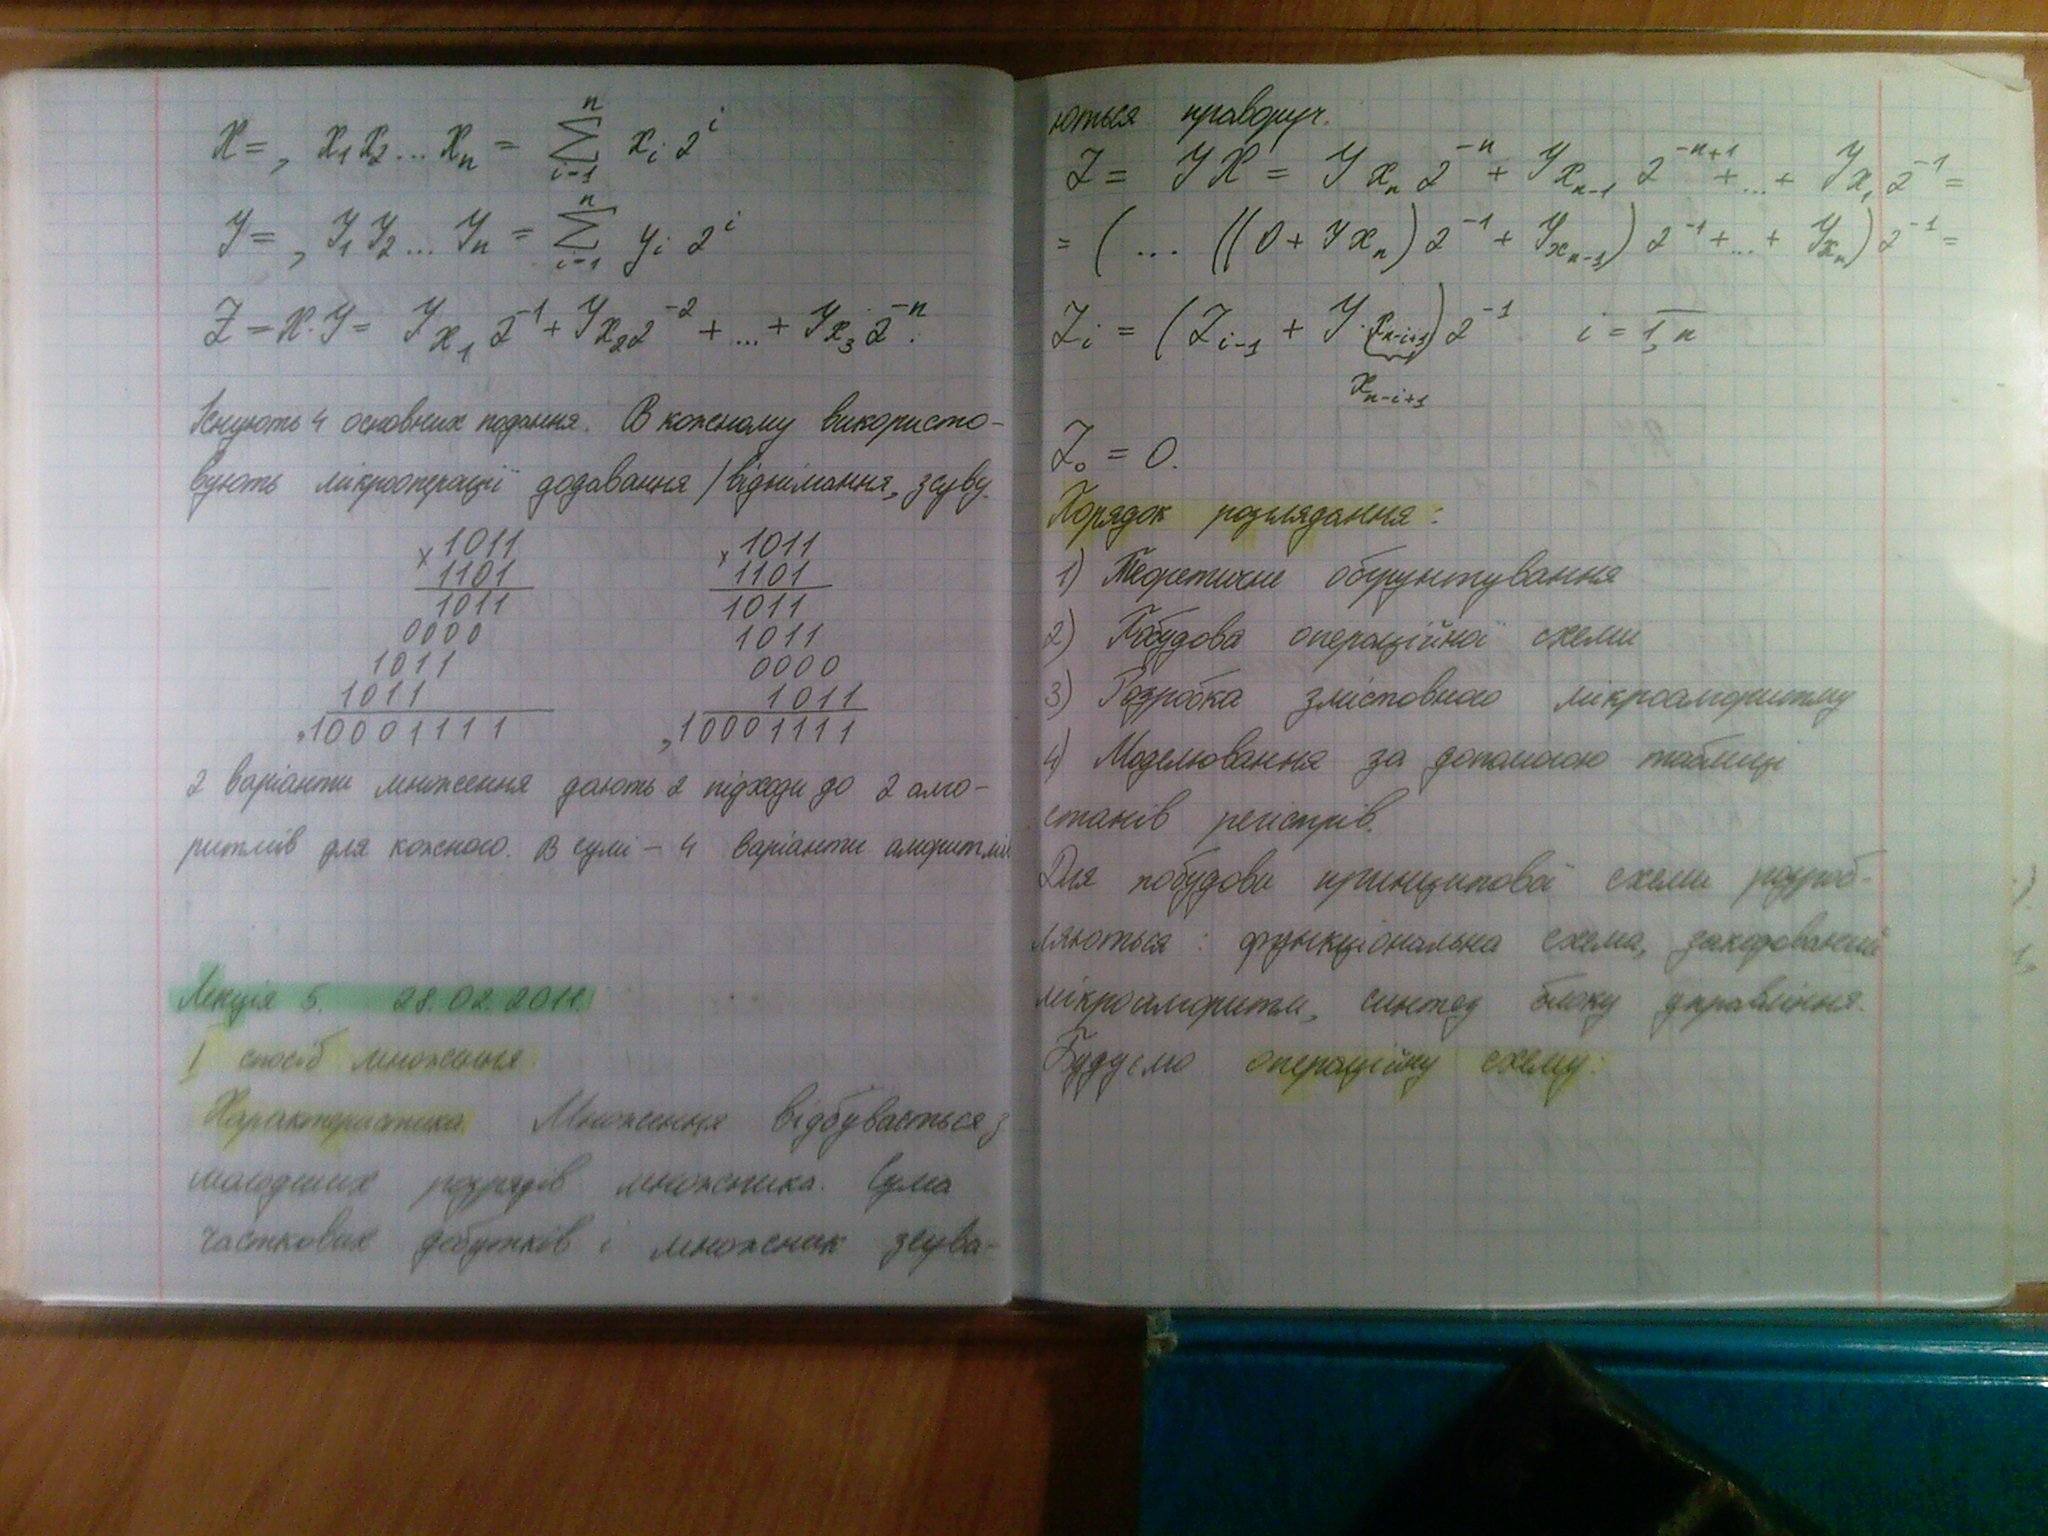 X = , x₁x₂...xₙ = Σⁿᵢ₌₁ xᵢ 2ⁱ
Y = , Y₁Y₂...Yₙ = Σⁿᵢ₌₁ yᵢ 2ⁱ
Z = X·Y = Yx₁ 2⁻¹ + Yx₂2⁻² + ... + Yx₃ 2⁻ⁿ.
Існують 4 основних подання. В кожному використо-
вують мікрооперації додавання / віднімання, зсуву.
× 1011
1101
1011
0000
1011
1011
,10001111
× 1011
1101
1011
1011
0000
1011
,10001111
2 варіанти множення дають 2 підходи до 2 алго-
ритмів для кожного. В сумі – 4 варіанти алгоритмів
Лекція 5. 28.02.2011.
I спосіб множення.
Характеристика. Множення відбувається з
молодших розрядів множника. Сума
часткових добутків і множник зсува-
ються праворуч.
Z = YX = Yxₙ 2⁻ⁿ + Yxₙ₋₁ 2⁻ⁿ⁺¹ + ... + Yx₁ 2⁻¹ =
= (... ((0 + Yxₙ) 2⁻¹ + Yxₙ₋₁) 2⁻¹ + ... + Yxₙ) 2⁻¹ =
Zᵢ = (Zᵢ₋₁ + Y·xₙ₋ᵢ₊₁) 2⁻¹ i = 1,n
xₙ₋ᵢ₊₁
Z₀ = 0.
Порядок розглядання:
1) Теоретичне обґрунтування
2) Побудова операційної схеми
3) Розробка змістовного мікроалгоритму
4) Моделювання за допомогою таблиці
станів регістрів.
Для побудови принципової схеми розроб-
ляються: функціональна схема, закодований
мікроалгоритм, синтез блоку управління.
Будуємо операційну схему: